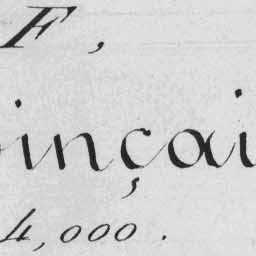 F,
inçai
4,000.